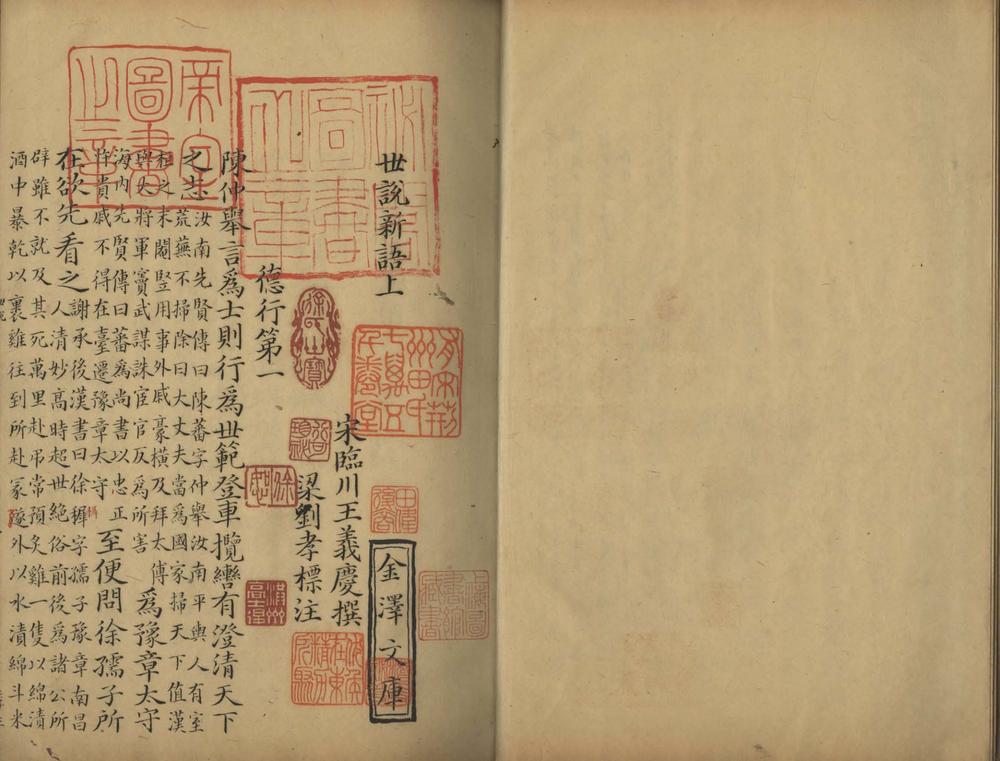 金澤文庫
世說新語上
宋臨川王義慶撰
梁劉孝標注
德行第一
陳仲舉言爲士則行爲世範登車攬轡有澄清天下
之志
汝南先賢傳曰陳蕃字仲舉汝南平輿人有室
荒蕪不掃除曰大丈夫當爲國家掃天下值漢
桓之末閹豎用事外戚豪橫及拜太傅
與大將軍竇武謀誅宦官反爲所害
爲豫章太守
海内先賢傳曰蕃爲尚書以忠正
忤貴戚不得在臺遷豫章太守
至便問徐孺子所
在欲先看之
謝承後漢書曰徐穉字孺子豫章南昌
人清妙高時超世絕俗前後爲諸公所
辟雖不就及其死萬里赴吊常預炙雞一隻以綿漬
酒中暴乾以裹雞往到所赴冢隧外以水漬綿斗米
祕閣圖書之章
帝室圖書之章